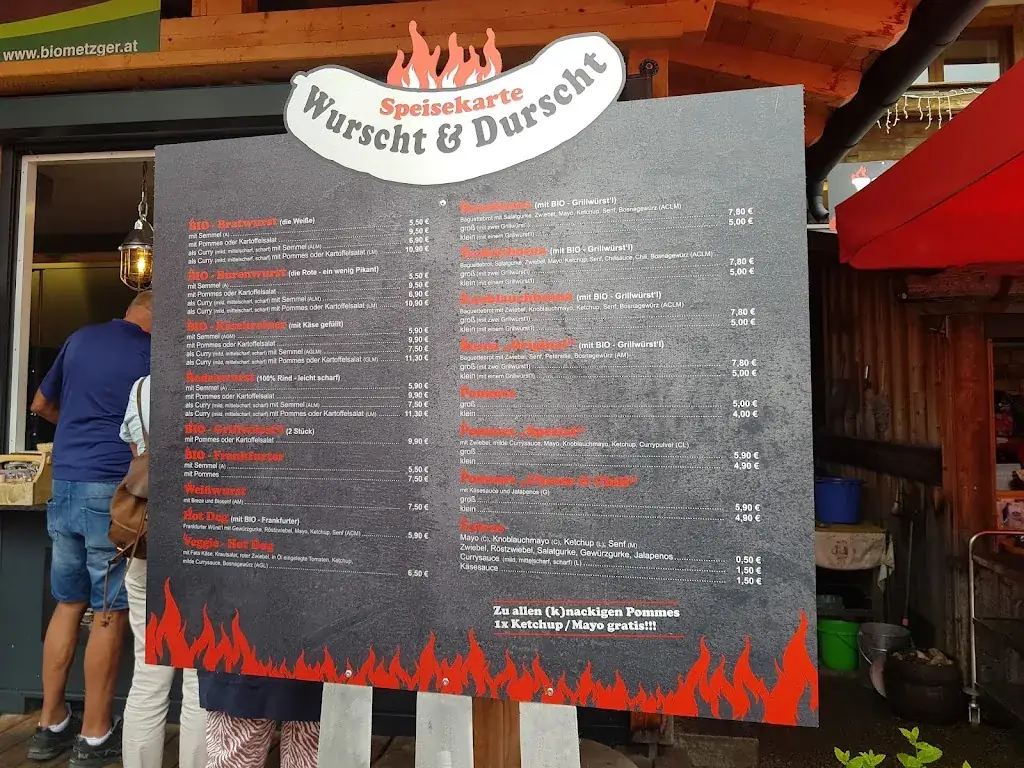 www.biometzger.at
Speisekarte
Wurscht & Durscht
BIO - Bratwurst (die Weiße)
mit Semmel (A) 5,50 €
mit Pommes oder Kartoffelsalat 9,50 €
als Curry (mild, mittelscharf, scharf) mit Semmel (ALM) 6,90 €
als Curry (mild, mittelscharf, scharf) mit Pommes oder Kartoffelsalat (LM) 10,90 €
BIO - Burenwurst (die Rote - ein wenig Pikant)
mit Semmel (A) 5,50 €
mit Pommes oder Kartoffelsalat 9,50 €
als Curry (mild, mittelscharf, scharf) mit Semmel (ALM) 6,90 €
als Curry (mild, mittelscharf, scharf) mit Pommes oder Kartoffelsalat (LM) 10,90 €
BIO - Käsekrainer (mit Käse gefüllt)
mit Semmel (AGM) 5,90 €
mit Pommes oder Kartoffelsalat 9,90 €
als Curry (mild, mittelscharf, scharf) mit Semmel (AGLM) 7,50 €
als Curry (mild, mittelscharf, scharf) mit Pommes oder Kartoffelsalat (GLM) 11,30 €
(100% Rind - leicht scharf)
mit Semmel (A) 5,90 €
mit Pommes oder Kartoffelsalat 9,90 €
als Curry (mild, mittelscharf, scharf) mit Semmel (ALM) 7,50 €
als Curry (mild, mittelscharf, scharf) mit Pommes oder Kartoffelsalat (LM) 11,30 €
BIO - Grillwürst'l (2 Stück)
mit Pommes oder Kartoffelsalat 9,90 €
BIO - Frankfurter
mit Semmel (A) 5,50 €
mit Pommes 7,50 €
Weißwurst
mit Breze und Biosenf (AM) 7,50 €
Hot Dog (mit BIO - Frankfurter)
Frankfurter Würstl mit Gewürzgurke, Röstzwiebel, Mayo, Ketchup, Senf (ACM) 5,90 €
Veggie - Hot Dog
mit Feta Käse, Krautsalat, roter Zwiebel, in Öl eingelegte Tomaten, Ketchup,
milde Currysauce, Bosnagewürz (AGL) 6,50 €
(mit BIO - Grillwürst'l)
Baguettebrot mit Salatgurke, Zwiebel, Mayo, Ketchup, Senf, Bosnagewürz (ACLM)
groß (mit zwei Grillwürstl) 7,80 €
klein (mit einem Grillwürstl) 5,00 €
(mit BIO - Grillwürst'l)
Baguettebrot, Salatgurke, Zwiebel, Mayo, Ketchup, Senf, Chilisauce, Chili, Bosnagewürz (ACLM)
groß (mit zwei Grillwürstl) 7,80 €
klein (mit einem Grillwürstl) 5,00 €
Knoblauchbosna (mit BIO - Grillwürst'l)
Baguettebrot mit Zwiebel, Knoblauchmayo, Ketchup, Senf, Bosnagewürz (ACLM)
groß (mit zwei Grillwürstl) 7,80 €
klein (mit einem Grillwürstl) 5,00 €
Bosna „Original“ (mit BIO - Grillwürst'l)
Baguettebrot mit Zwiebel, Senf, Petersilie, Bosnagewürz (AM)
groß (mit zwei Grillwürstl) 7,80 €
klein (mit einem Grillwürstl) 5,00 €
Pommes
groß 5,00 €
klein 4,00 €
Pommes „Spezial“
mit Zwiebel, milde Currysauce, Mayo, Knoblauchmayo, Ketchup, Currypulver (CL)
groß 5,90 €
klein 4,90 €
Pommes „Cheese & Chili“
mit Käsesauce und Jalapenos (G)
groß 5,90 €
klein 4,90 €
Extras
Mayo (C), Knoblauchmayo (C), Ketchup (L), Senf (M)
Zwiebel, Röstzwiebel, Salatgurke, Gewürzgurke, Jalapenos 0,50 €
Currysauce (mild, mittelscharf, scharf) (L) 1,50 €
Käsesauce 1,50 €
Zu allen (k)nackigen Pommes
1x Ketchup / Mayo gratis!!!